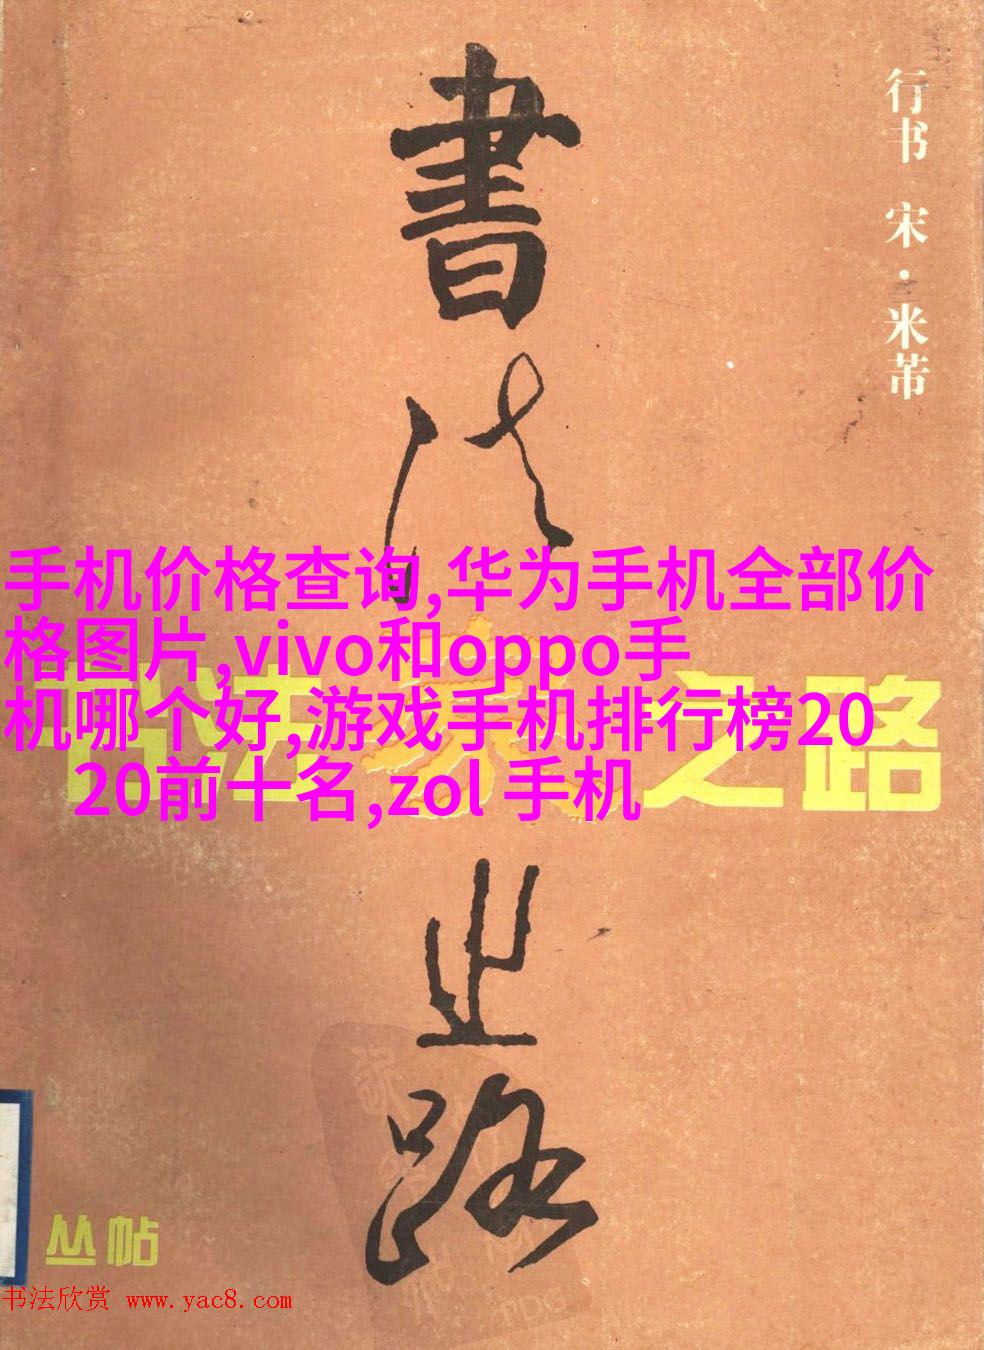 行书 宋·米芾
書法
之路
手机价格查询,华为手机全部价
格图片,vivo和oppo手
机哪个好,游戏手机排行榜20
20前十名,zol 手机
法 之路
丛帖
书法欣赏 www.yac8.com